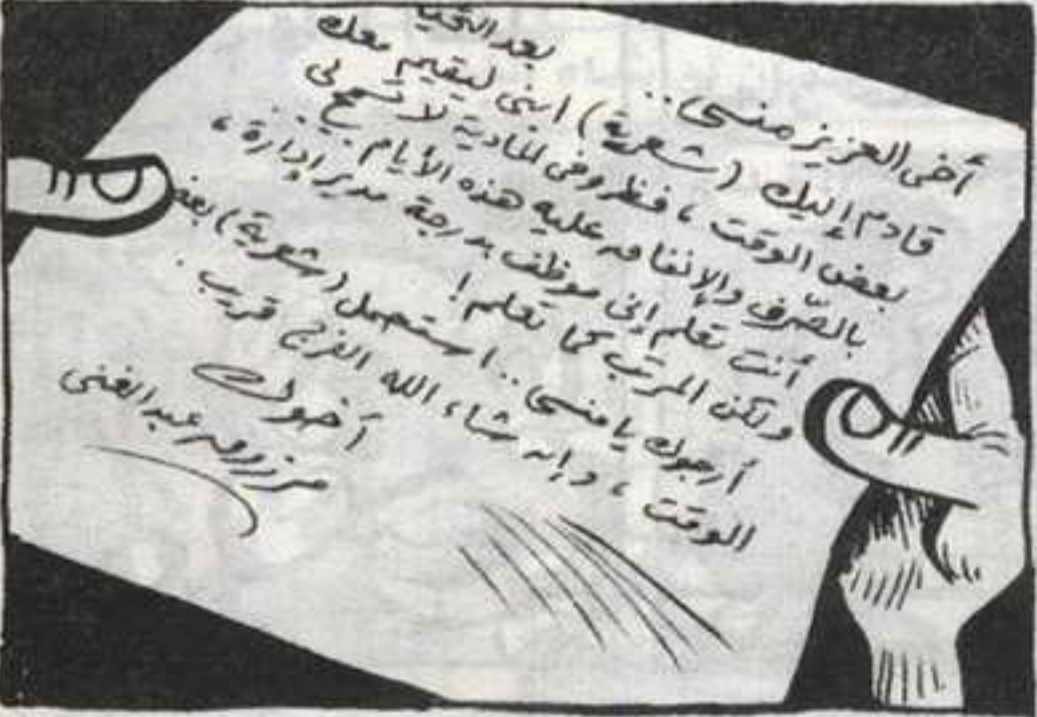 أخى العزيز منسى ..
بعد التحية
قادم إليك (شعرية) ابنى ليقيم معك
بعض الوقت ، فظروفى المادية لا تسمح لى
بالصّرف والإنفاق عليه هذه الأيام ..
أنت تعلم إنى موظف بدرجة مدير إدارة ،
ولكن المرتب كما تعلم !
أرجوك يا منسى .. استحمل (شعرية) بعض
الوقت ، وإن شاء الله الفرج قريب .
أخوك
مرزوق عبد الغنى